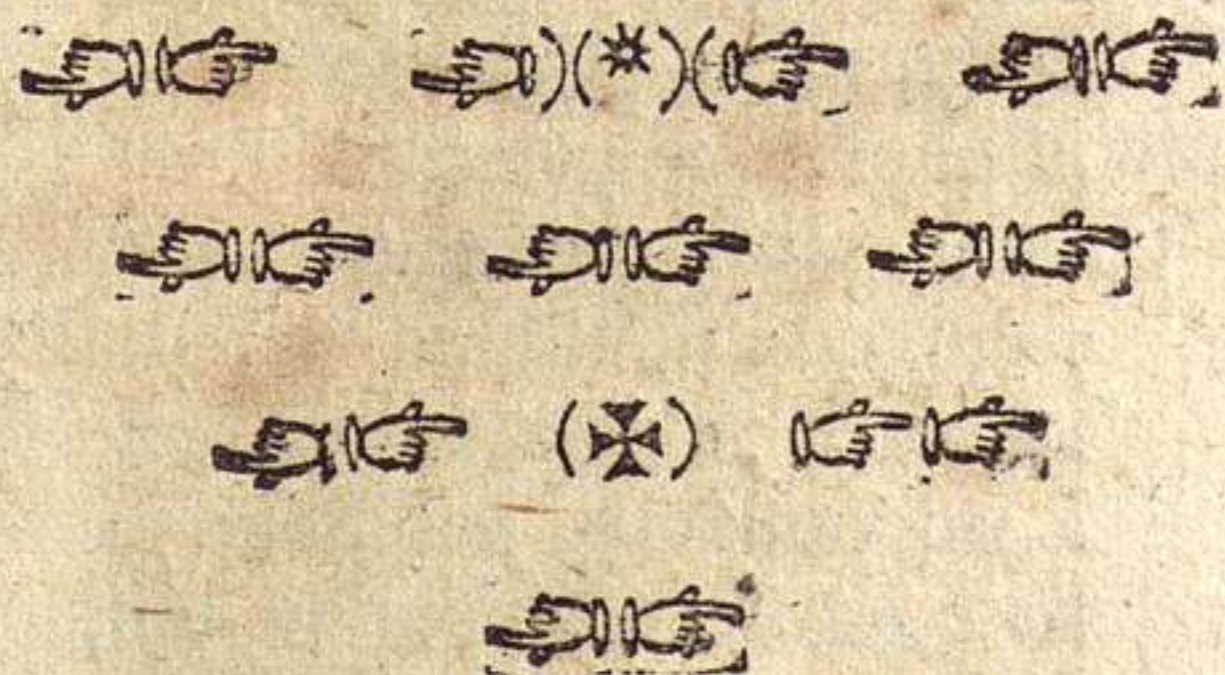 ☚ ☞ ☚ )( ✴ )( ☞ ☚ ☞
☚ ☞ ☚ ☞ ☚ ☞
☚ ☞ ( ✠ ) ☞ ☞
☚ ☞